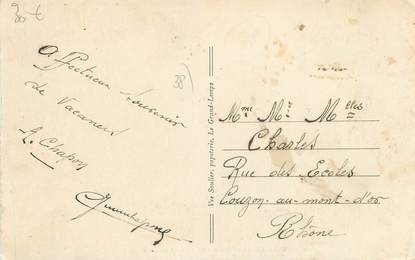 30 €
Affectueux Souvenir
de Vacances
A. Chapon
38)
Vve Soulier, papeterie, Le Grand-Lemps
Mme Mr Melles
Charles
Rue des Ecoles
Couzon-au-mont-d'or
Rhône